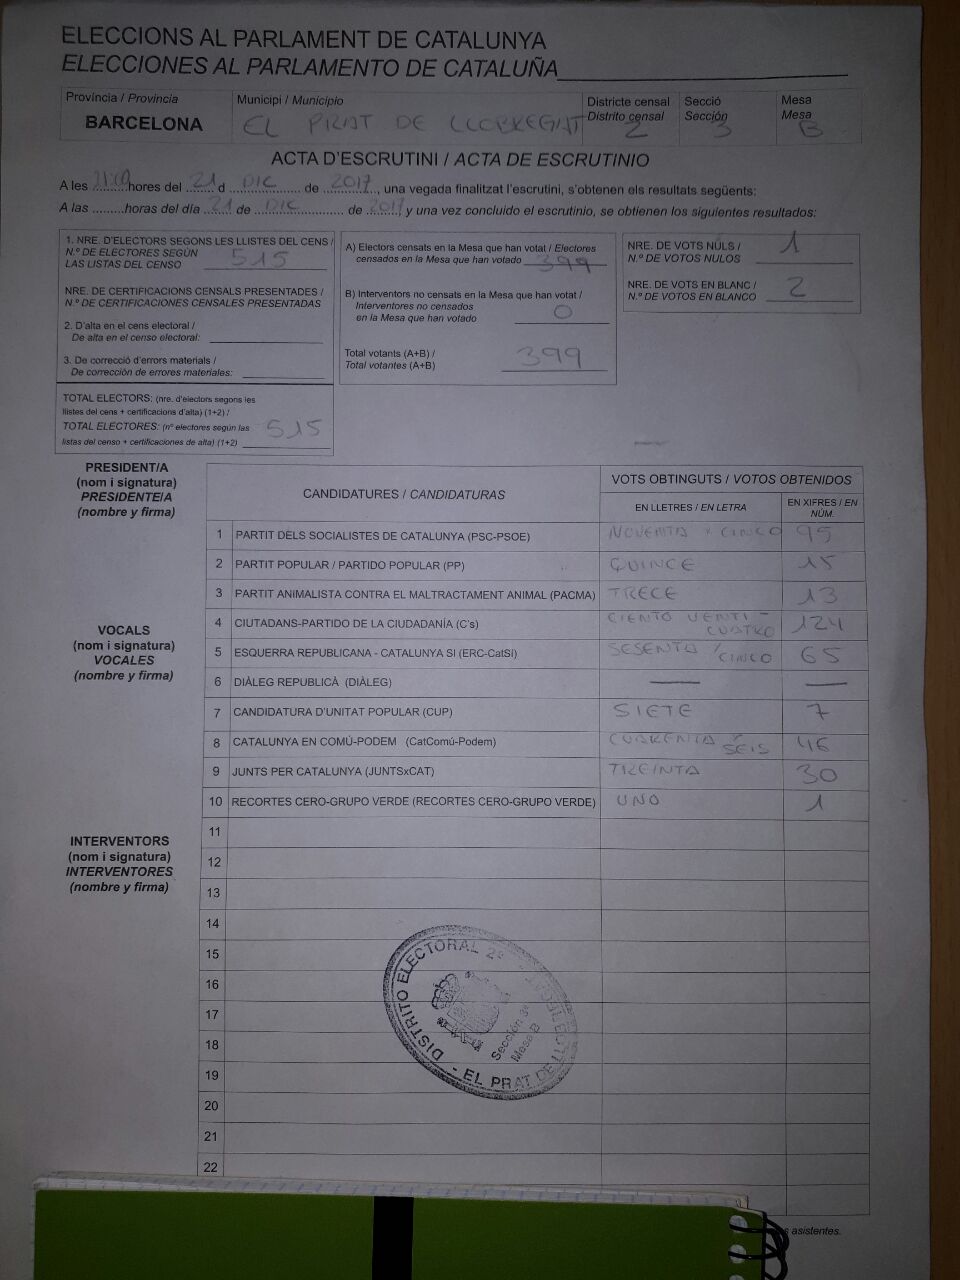 ELECCIONS AL PARLAMENT DE CATALUNYA
ELECCIONES AL PARLAMENTO DE CATALUÑA
Província / Provincia
BARCELONA
Municipi / Municipio
EL PRAT DE LLOBREGAT
Districte censal
Distrito censal
2
Secció
Sección
3
Mesa
Mesa
B
ACTA D'ESCRUTINI / ACTA DE ESCRUTINIO
A les ........hores del 21 d DIC de 2017, una vegada finalitzat l'escrutini, s'obtenen els resultats següents:
A las .........horas del día 21 de DIC de 2017, y una vez concluido el escrutinio, se obtienen los siguientes resultados:
1. NRE. D'ELECTORS SEGONS LES LLISTES DEL CENS /
N.º DE ELECTORES SEGÚN
LAS LISTAS DEL CENSO 515
NRE. DE CERTIFICACIONS CENSALS PRESENTADES /
N.º DE CERTIFICACIONES CENSALES PRESENTADAS
2. D'alta en el cens electoral /
De alta en el censo electoral:
3. De correcció d'errors materials /
De corrección de errores materiales:
TOTAL ELECTORS: (nre. d'electors segons les
llistes del cens + certificacions d'alta) (1+2) /
TOTAL ELECTORES: (nº electores según las
listas del censo + certificaciones de alta) (1+2)
515
A) Electors censats en la Mesa que han votat / Electores
censados en la Mesa que han votado 399
B) Interventors no censats en la Mesa que han votat /
Interventores no censados
en la Mesa que han votado 0
Total votants (A+B) /
Total votantes (A+B) 399
NRE. DE VOTS NULS /
N.º DE VOTOS NULOS 1
NRE. DE VOTS EN BLANC /
N.º DE VOTOS EN BLANCO 2
PRESIDENT/A
(nom i signatura)
PRESIDENTE/A
(nombre y firma)
VOCALS
(nom i signatura)
VOCALES
(nombre y firma)
INTERVENTORS
(nom i signatura)
INTERVENTORES
(nombre y firma)
CANDIDATURES / CANDIDATURAS
VOTS OBTINGUTS / VOTOS OBTENIDOS
EN LLETRES / EN LETRA
EN XIFRES / EN
NÚM.
1 PARTIT DELS SOCIALISTES DE CATALUNYA (PSC-PSOE) NOVENTA Y CINCO 95
2 PARTIT POPULAR / PARTIDO POPULAR (PP) QUINCE 15
3 PARTIT ANIMALISTA CONTRA EL MALTRACTAMENT ANIMAL (PACMA) TRECE 13
4 CIUTADANS-PARTIDO DE LA CIUDADANÍA (C's) CIENTO VENTI-
CUATRO 124
5 ESQUERRA REPUBLICANA - CATALUNYA SI (ERC-CatSí) SESENTA Y
CINCO 65
6 DIÀLEG REPUBLICÀ (DIÀLEG) — —
7 CANDIDATURA D'UNITAT POPULAR (CUP) SIETE 7
8 CATALUNYA EN COMÚ-PODEM (CatComú-Podem) CUARENTA Y
SEIS 46
9 JUNTS PER CATALUNYA (JUNTSxCAT) TREINTA 30
10 RECORTES CERO-GRUPO VERDE (RECORTES CERO-GRUPO VERDE) UNO 1
11
12
13
14
15
16
17
18
19
20
21
22
DISTRITO ELECTORAL 2º
Sección 3ª
Mesa B
- EL PRAT DE LLOBREGAT
asistentes.